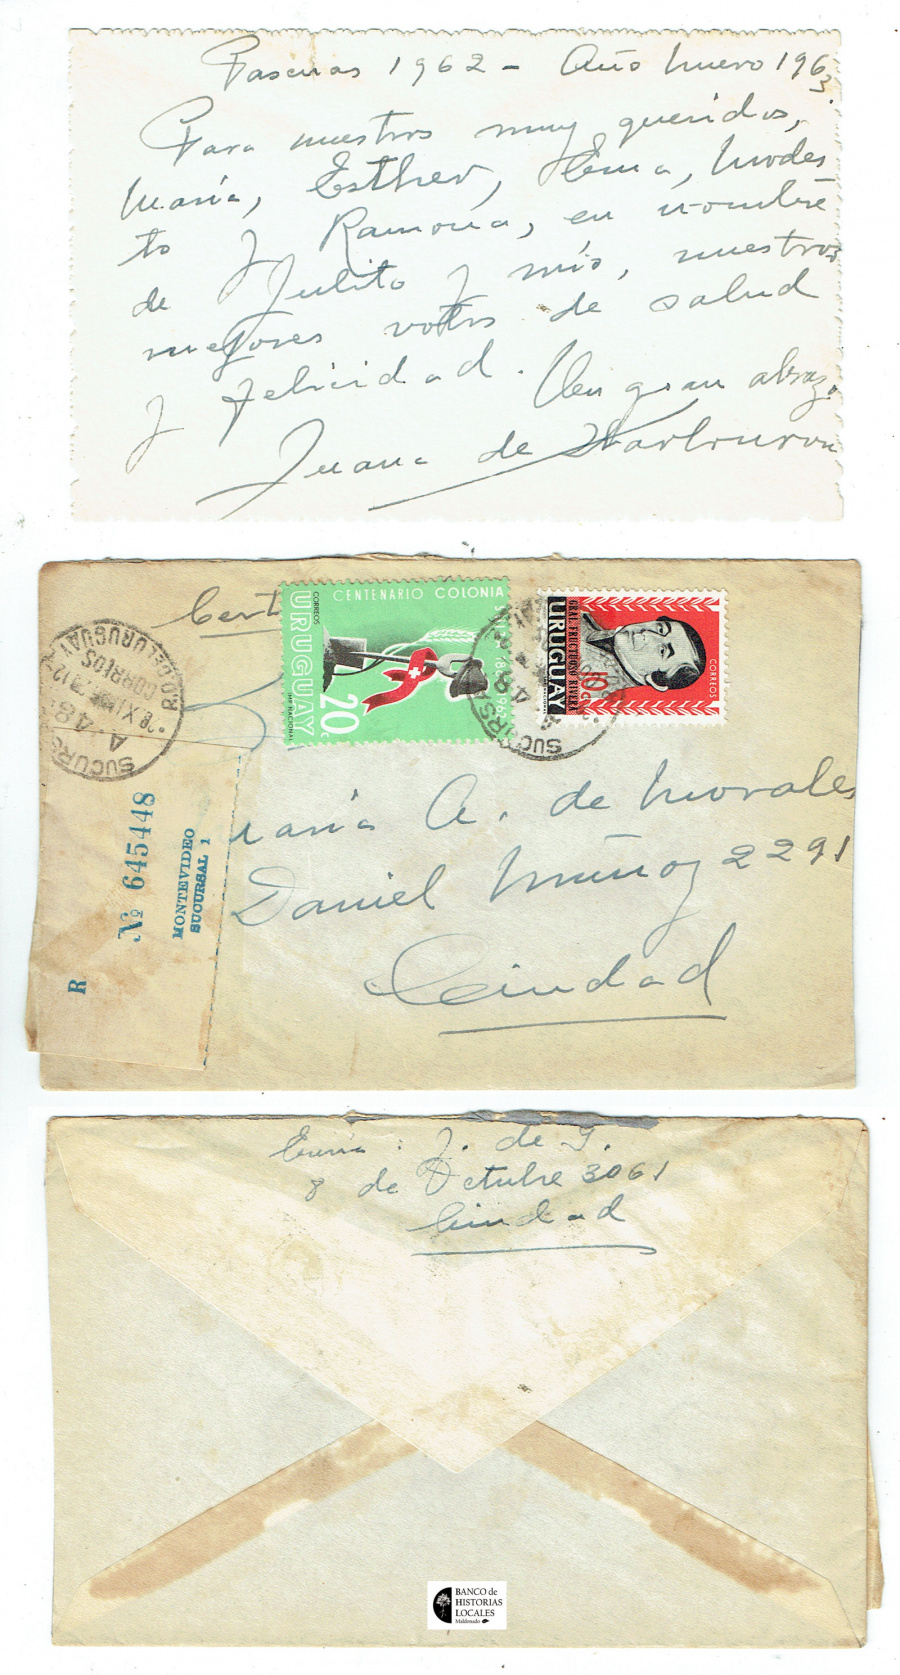 Pascuas 1962 - Año Nuevo 1963.
Para nuestros muy queridos,
María, Esther, Ema, Modes
to y Ramona, en nombre
de Julito y mío, nuestros
mejores votos de salud
y felicidad. Un gran abrazo
Juana de Ibarbourou
Cert
CENTENARIO COLONIA
CORREOS
URUGUAY
20c
IMP. NACIONAL
GRAL. FRUCTUOSO RIVERA
URUGUAY
10
CORREOS
R.O. DEL URUGUAY
CORREOS
SUCURS
A. 48
SUCURS
A 48
R
Nº 645448
MONTEVIDEO
SUCURSAL 1
María A. de Morales
Daniel Muñoz 2291
Ciudad
Envía: J. de I.
8 de Octubre 3061
Ciudad
BANCO de
HISTORIAS
LOCALES
Maldonado